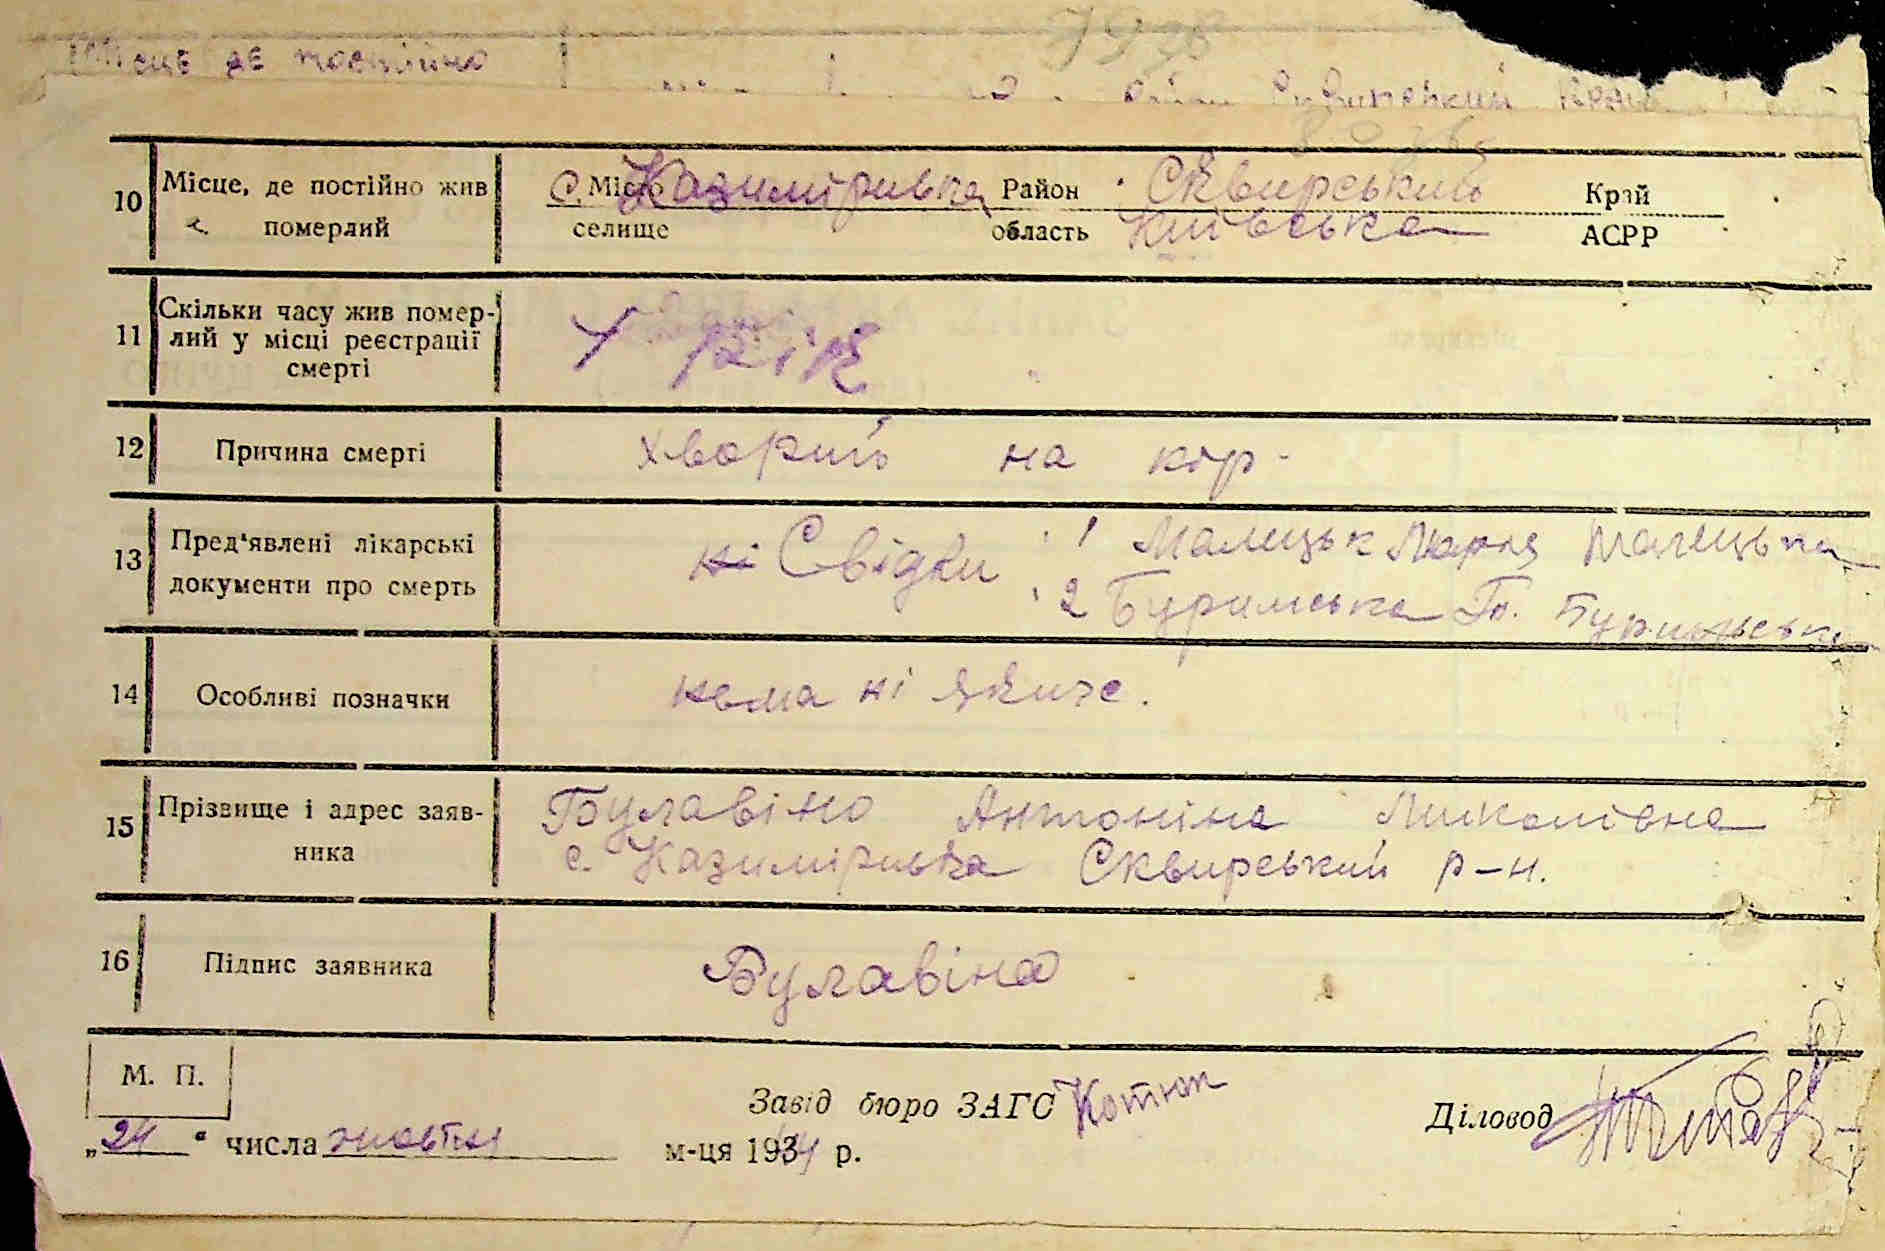 Місце де постійно
Сквирський
10 Місце, де постійно жив померлий
с. Місто Казимірівка Район Сквирський Край
селище область Київська АСРР
11 Скільки часу жив помер-
лий у місці реєстрації
смерті
1 рік
12 Причина смерті хворий на кір-
13 Пред'явлені лікарські
документи про смерть
Свідки: 1 Малецьк Марія Малецька
2 Буримська Буримська
14 Особливі позначки нема ні яких.
15 Прізвище і адрес заяв-
ника
Булавіно Антоніна Миколівна
с. Казиміривка Сквирський р-н.
16 Підпис заявника Булавіна
М. П.
Завід бюро ЗАГС Діловод
„24“ числа жовтня м-ця 1934 р.